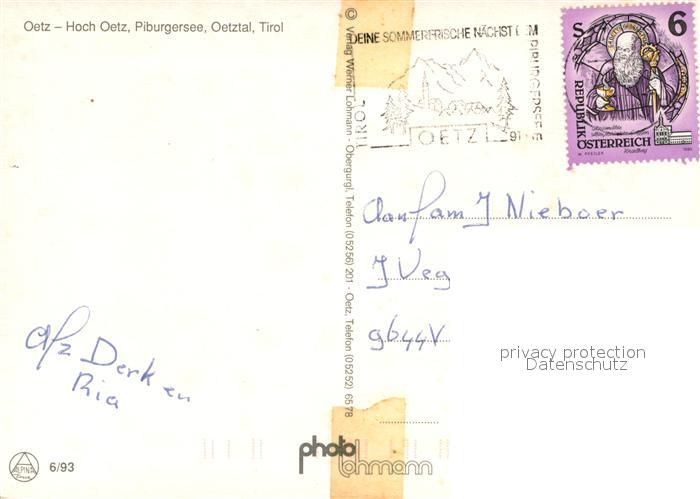 Oetz – Hoch Oetz, Piburgersee, Oetztal, Tirol
© Verlag Werner Lohmann - Obergurgl, Telefon (05256) 201 - Oetz, Telefon (05252) 6578
DEINE SOMMERFRISCHE NÄCHST DEM
PIBURGERSEE
TIROL
OETZ
S 6
REPUBLIK
ÖSTERREICH
W. PFEILER
1993
Aan fam J Nieboer
J Veg
9644V
privacy protection
Datenschutz
Afz Derk en
Ria
ALPINA
6/93
photo
Lohmann